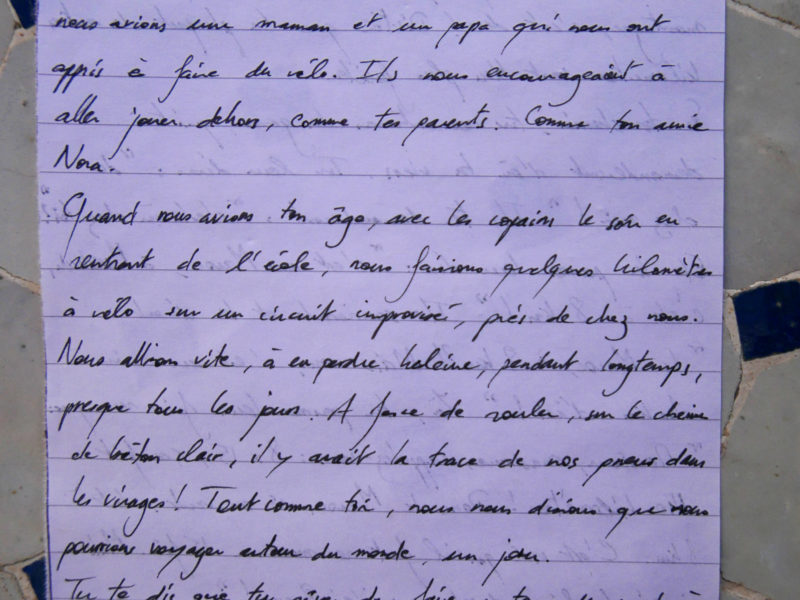 nous avions une maman et un papa qui nous ont
appris à faire du vélo. Ils nous encourageaient à
aller jouer dehors, comme tes parents. Comme ton amie
Nora.
Quand nous avions ton âge, avec les copains le soir en
rentrant de l'école, nous faisions quelques kilomètres
à vélo sur un circuit improvisé, près de chez nous.
Nous allions vite, à en perdre haleine, pendant longtemps,
presque tous les jours. A force de rouler, sur le chemin
de béton clair, il y avait la trace de nos pneus dans
les virages ! Tout comme toi, nous nous disions que nous
pourrions voyager autour du monde, un jour.
Tu te dis que tu